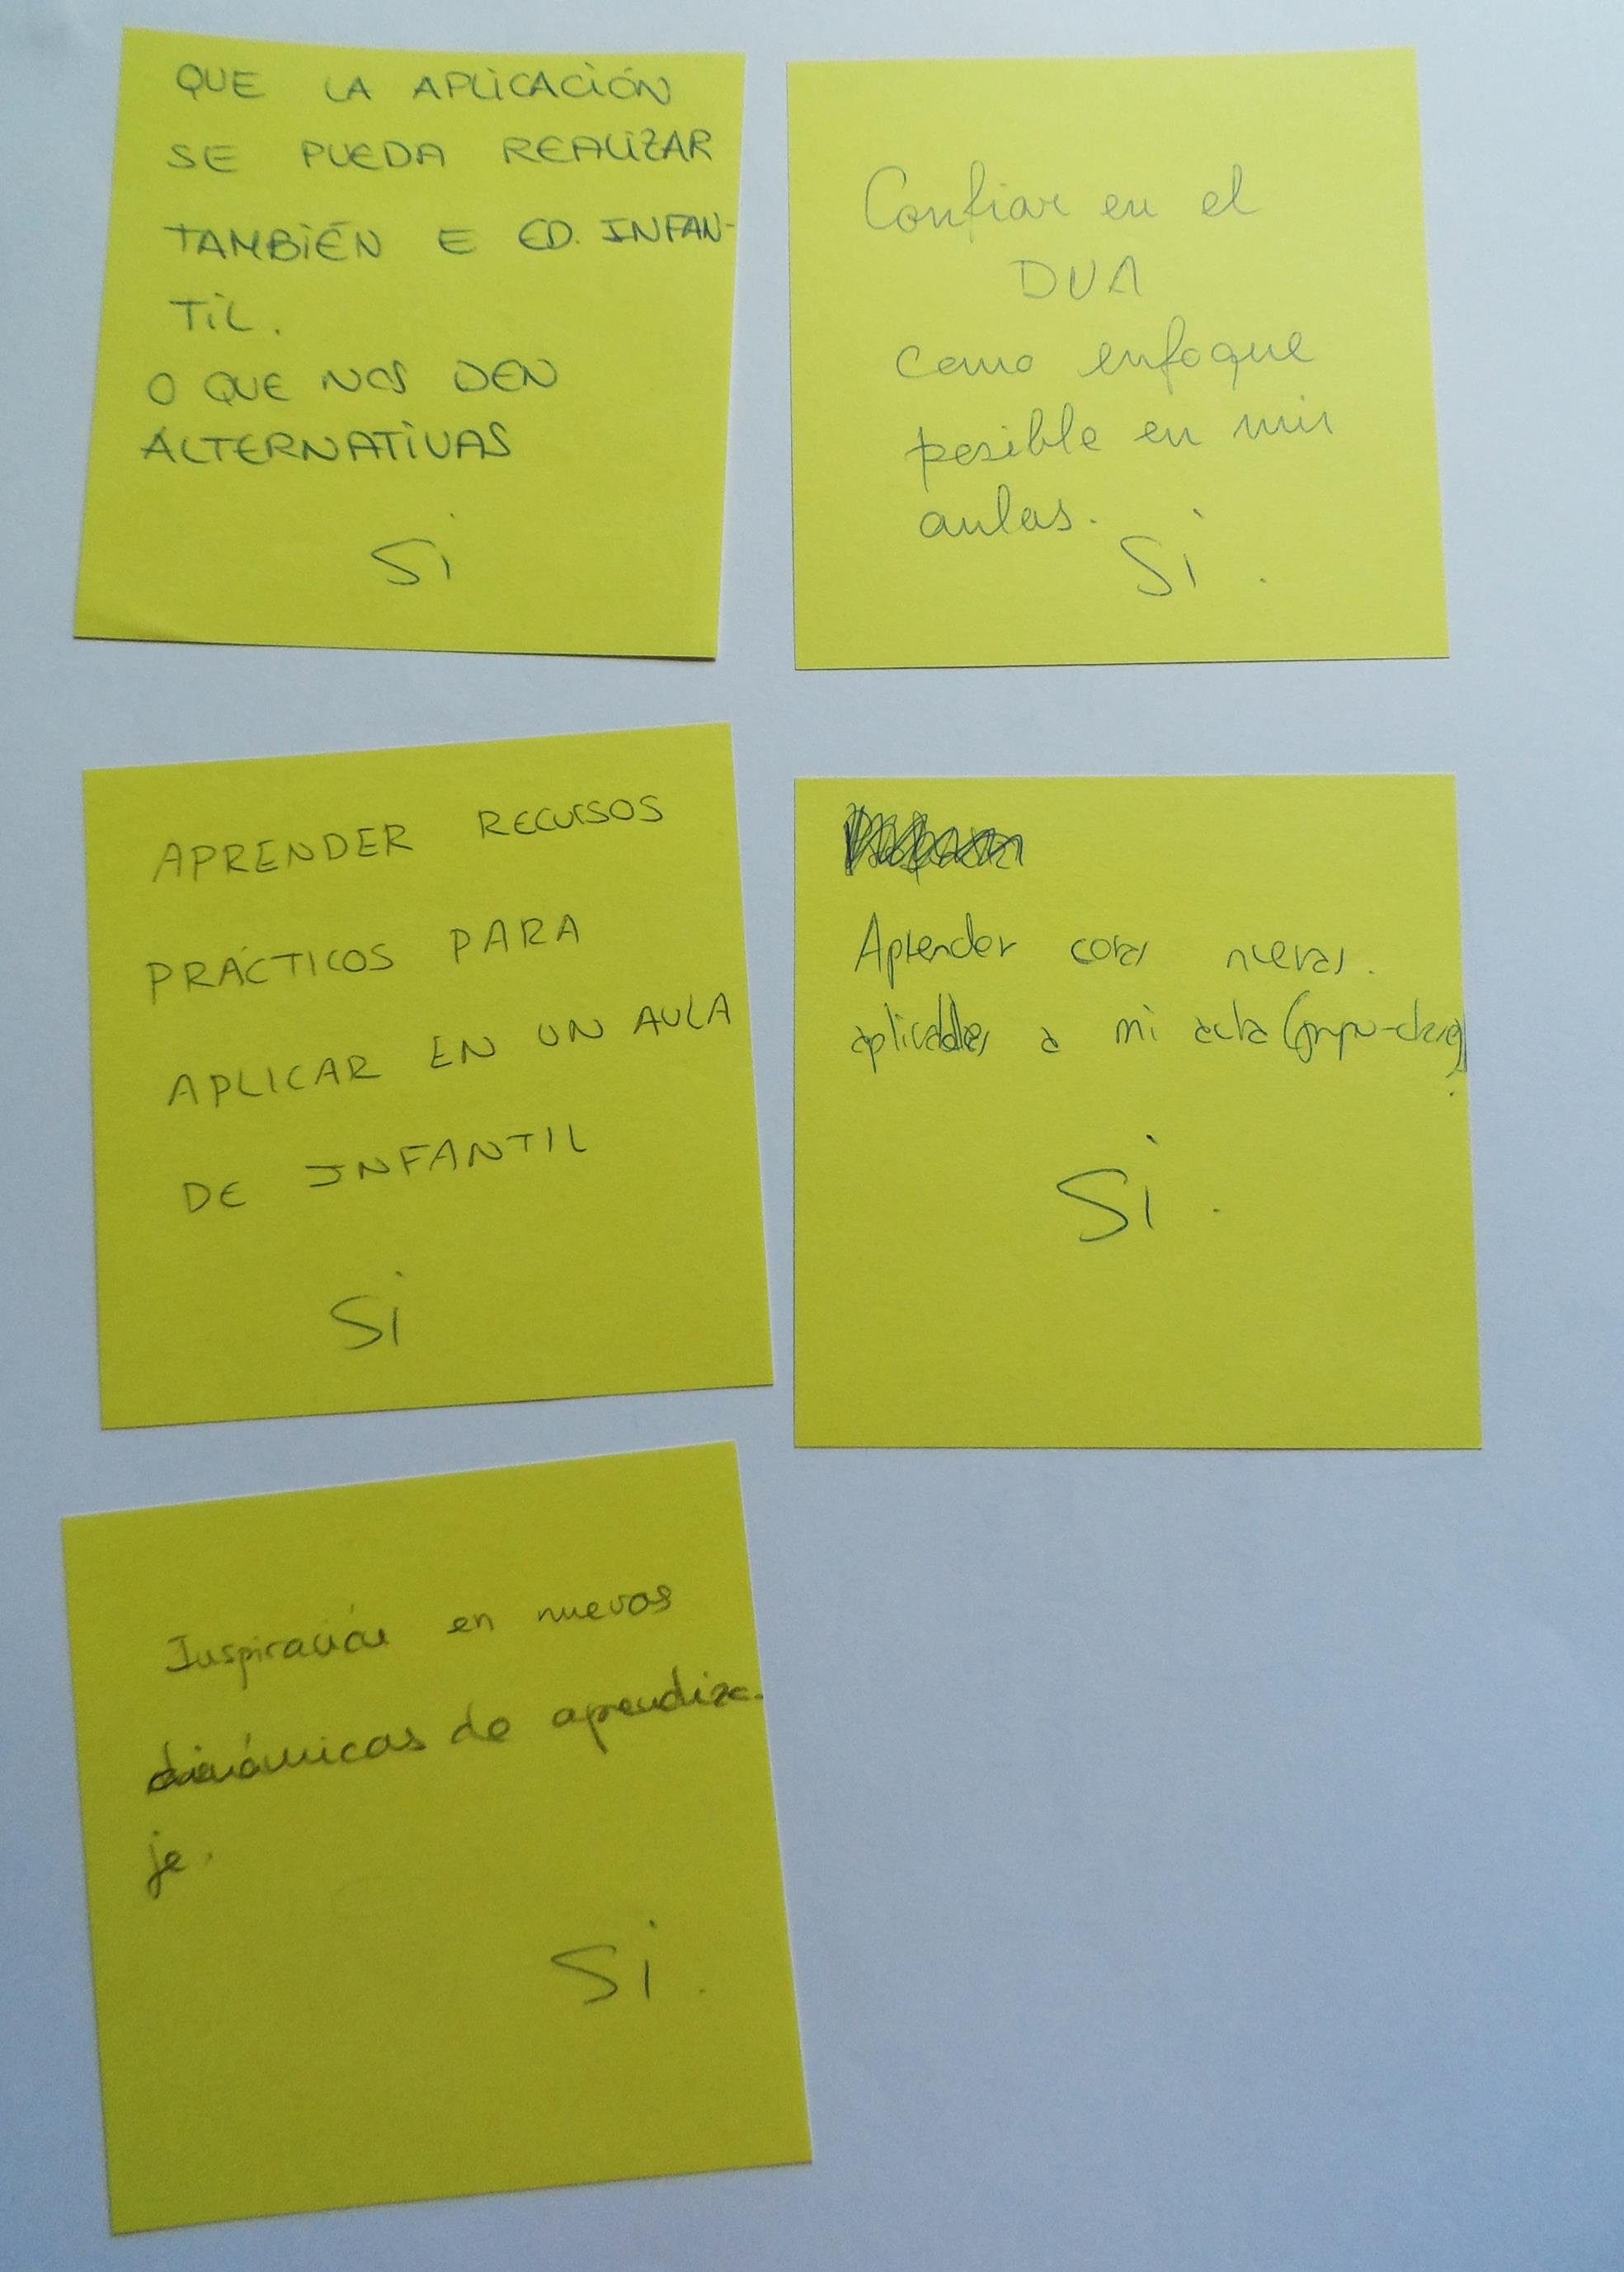 QUE LA APLICACIÓN
SE PUEDA REALIZAR
TAMBIÉN E ED. INFAN-
TIL.
O QUE NOS DEN
ALTERNATIVAS
Si
Confiar en el
DUA
como enfoque
posible en mis
aulas.
Si.
APRENDER RECURSOS
PRÁCTICOS PARA
APLICAR EN UN AULA
DE INFANTIL
Si
Aprender cosas nuevas.
aplicables a mi aula (grupo-clase).
Si.
Inspiración en nuevas
dinámicas de aprendiza-
je.
Si.